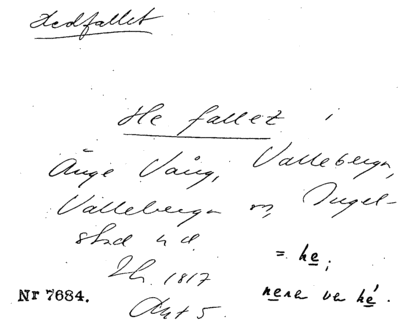 Hedfallet
He fallet i
Änge Vång, Valleberga,
Valleberga sn, Ingel-
stad hd.
Lh. 1817
Akt 5.
= he;
nere va hé.
Nr 7684.